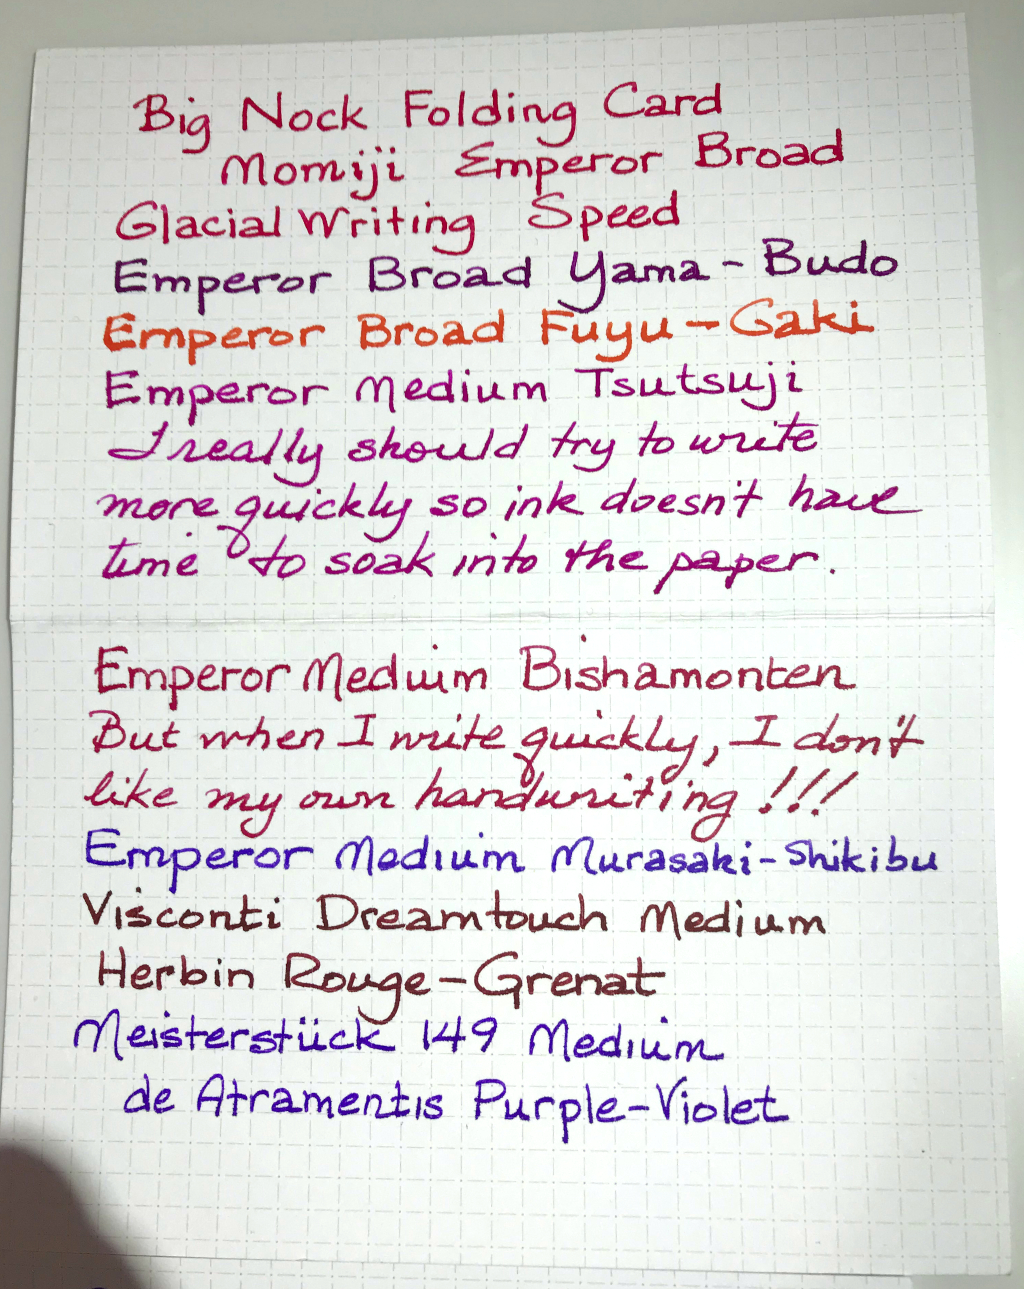 Big Nock Folding Card
Momiji Emperor Broad
Glacial Writing Speed
Emperor Broad Yama-Budo
Emperor Broad Fuyu-Gaki
Emperor Medium Tsutsuji
I really should try to write
more quickly so ink doesn't have
time to soak into the paper.
Emperor Medium Bishamonten
But when I write quickly, I don't
like my own handwriting!!!
Emperor Medium Murasaki-Shikibu
Visconti Dreamtouch Medium
Herbin Rouge-Grenat
Meisterstück 149 Medium
de Atramentis Purple-Violet